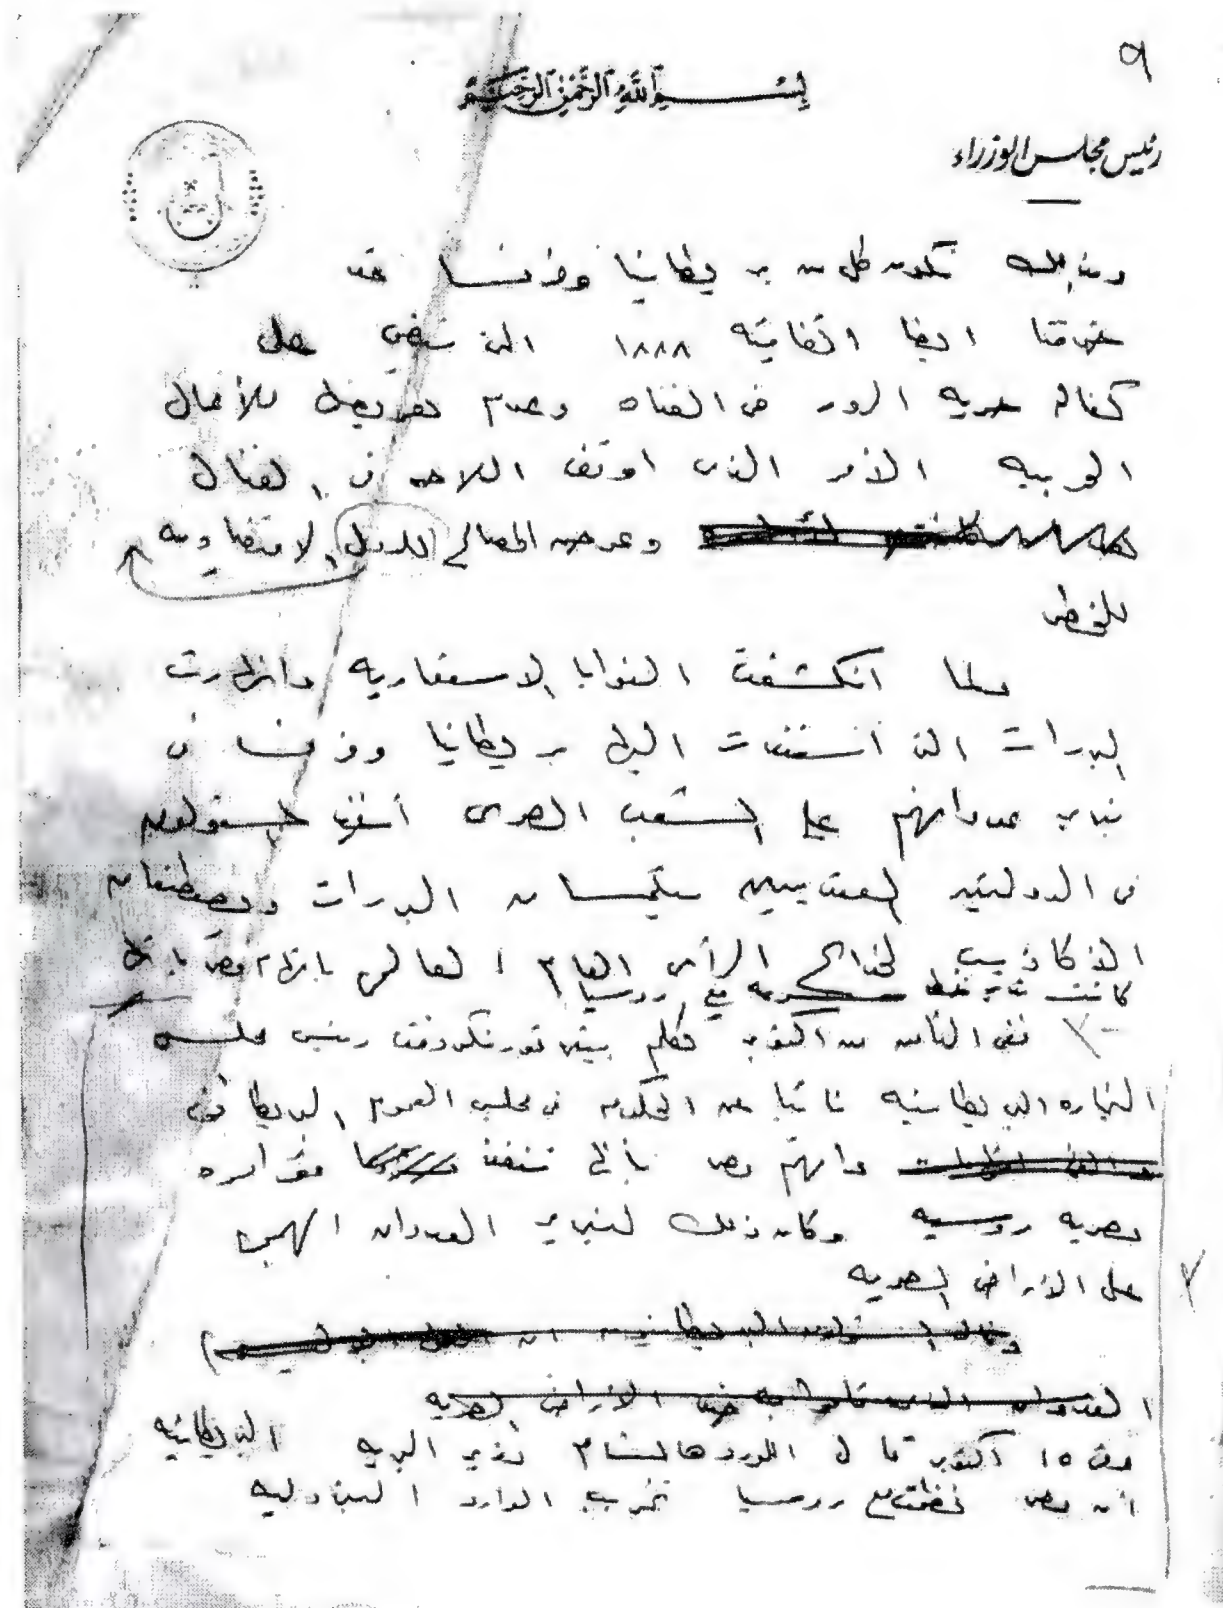 ٩
بسم الله الرحمن الرحيم
رئيس مجلس الوزراء
وبذلك تكون كل من بريطانيا وفرنسا قد
خرقتا ايضا اتفاقية ١٨٨٨ التى تنص على
كفالة حرية المرور فى القناة وعدم تعريضها للأعمال
الحربية الأمر الذى اوقف الملاحة فى القنال
وعرض المصالح للدول الاقتصادية
للخطر
ولما انكشفت النوايا الاستعمارية وانهارت
المبررات التى استندت اليها بريطانيا وفرنسا فى
تبرير عدوانهم على الشعب المصرى أخذ المسئولون
فى الدولتين المعتديتين يلتمسان المبررات ويصطنعان
الأكاذيب لخداع الرأى العام العالمى باتهام مصر بانها
كانت مع روسيا
ففى الثامن من اكتوبر تكلم بيتر تورنكروفت رئيس مجلس
التجارة البريطانية نائبا عن الحكومة فى مجلس العموم البريطانى
واتهم مصر بأنها مؤامرة
مصرية روسية وكان ذلك لتبرير العدوان الهمجى
على الأراضى المصرية
وقال المسئولون البريطانيون ان
العدوان الذى قاموا به ضد الأراضى المصرية
وفى ١٥ اكتوبر قال اللورد هالشام وزير البحرية البريطانية
أن مصر خططت مع روسيا تخريب الموارد البترولية